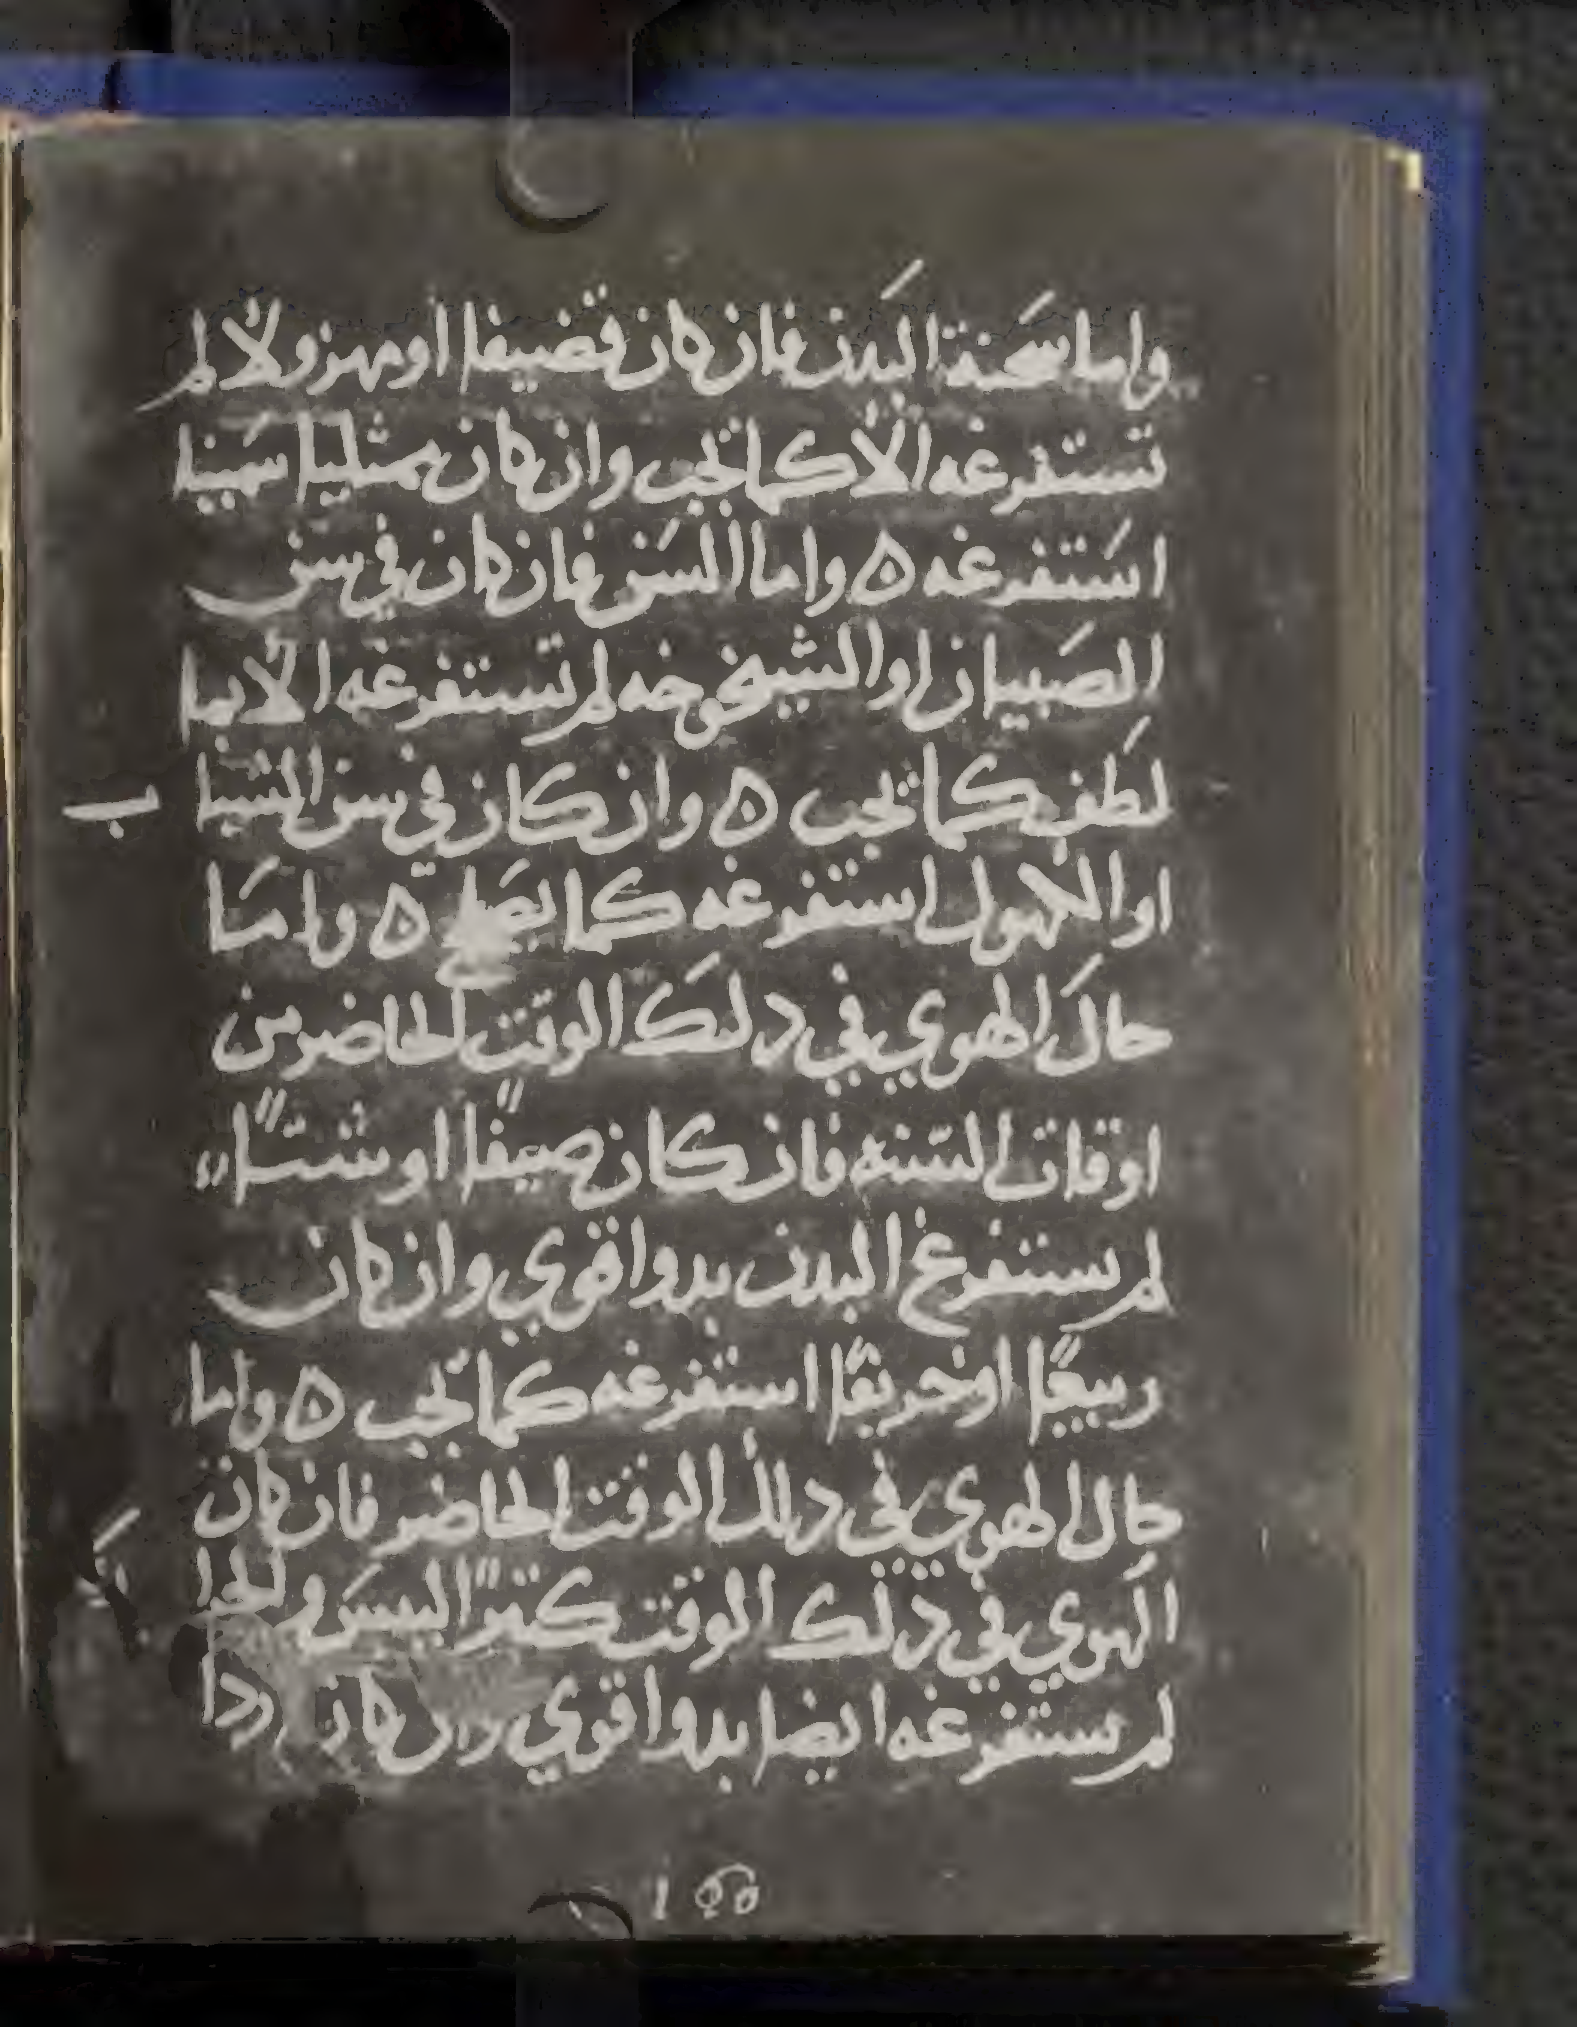 واما سحنة البدن فان كان قضيفا او مهزولا لم
تستفرغه الا كما تجب وان كان ممتليا سمينا
استفرغه ه واما السن فان كان في سن
الصبيان او الشيخوخه لم تستفرغه الا بما
لطف كما تجب ه وان كان في سن الشبا ب
او الكهول استفرغه كما يصلح ه واما
حال الهوي في دلك الوقت الحاضر من
اوقات السنه فان كان صيفا او شتاء
لم يستفرغ البدن بدوا قوي وان كان
ربيعا او خريفا استفرغه كما تجب ه واما
حال الهوي في دلك الوقت الحاضر فان كان
الهوي في ذلك الوقت كثير اليبس والحرا
لم يستفرغه ايضا بدوا قوي وان كان